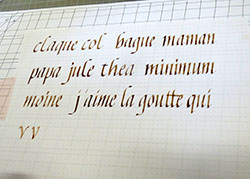 claque col bague maman
papa jule thea minimum
moine j'aime la goutte qui
v v